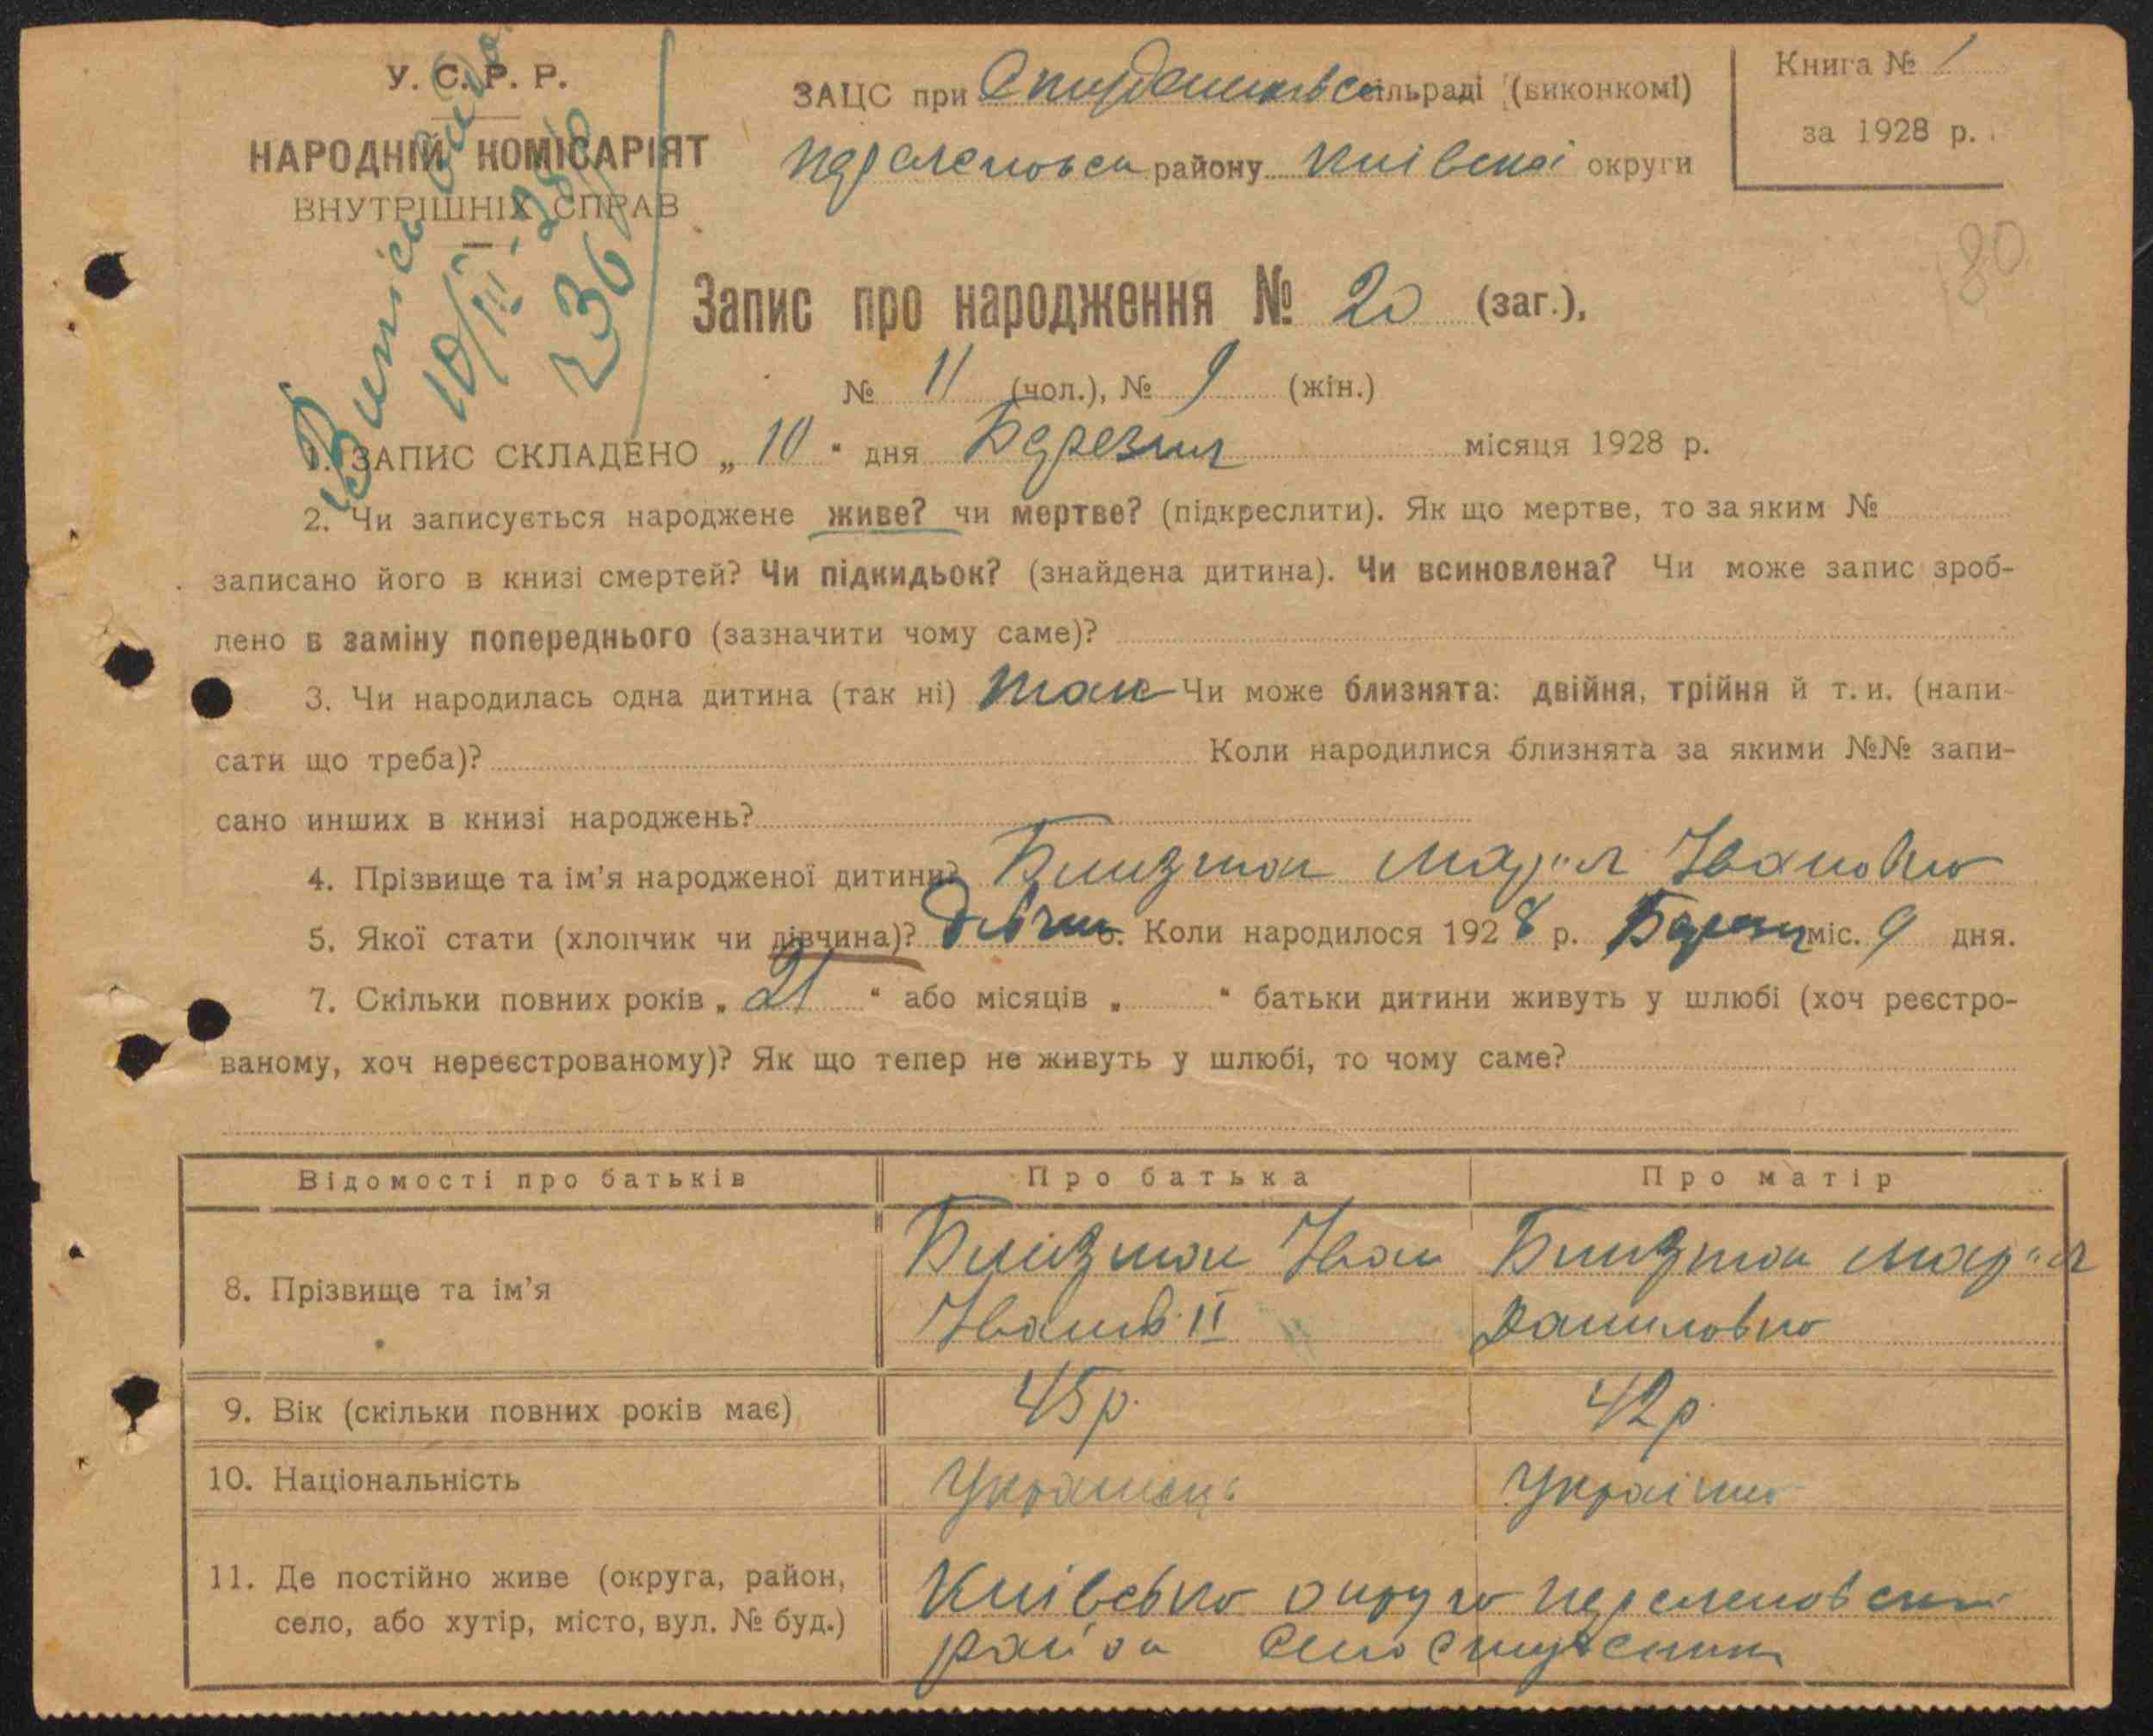 У. С. Р. Р.
НАРОДНІЙ КОМІСАРІЯТ
ВНУТРІШНІХ СПРАВ
10/III-28р
236
ЗАЦС при сільраді (виконкомі)
району Київскої округи
Книга № 1
за 1928 р.
80
Запис про народження № 20 (заг.),
№ 11 (чол.), № 9 (жін.)
1. ЗАПИС СКЛАДЕНО „ 10 “ дня Березня місяця 1928 р.
2. Чи записується народжене живе? чи мертве? (підкреслити). Як що мертве, то за яким №
записано його в книзі смертей? Чи підкидьок? (знайдена дитина). Чи всиновлена? Чи може запис зроб-
лено в заміну попереднього (зазначити чому саме)?
3. Чи народилась одна дитина (так ні) так Чи може близнята: двійня, трійня й т. и. (напи-
сати що треба)? Коли народилися близнята за якими №№ запи-
сано инших в книзі народжень?
4. Прізвище та ім’я народженої дитини? Марія Івановна
5. Якої стати (хлопчик чи дівчина)? 6. Коли народилося 1928 р. міс. 9 дня.
7. Скільки повних років „ 21 “ або місяців „ “ батьки дитини живуть у шлюбі (хоч реєстро-
ваному, хоч нереєстрованому)? Як що тепер не живуть у шлюбі, то чому саме?
Відомості про батьків Про батька Про матір
8. Прізвище та ім’я Іван II Марія Даниловна
9. Вік (скільки повних років має) 45р. 42р.
10. Національність Українець Українка
11. Де постійно живе (округа, район,
село, або хутір, місто, вул. № буд.)
Київська округа
район село